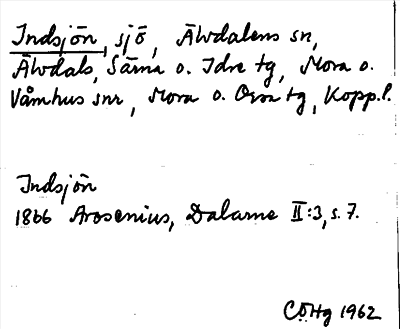 Indsjön, sjö, Älvdalens sn,
Älvdals, Särna o. Idre tg, Mora o.
Våmhus snr, Mora o. Orsa tg, Kopp.l.
Indsjön
1866 Arosenius, Dalarne II:3, s. 7.
CÖHg 1962